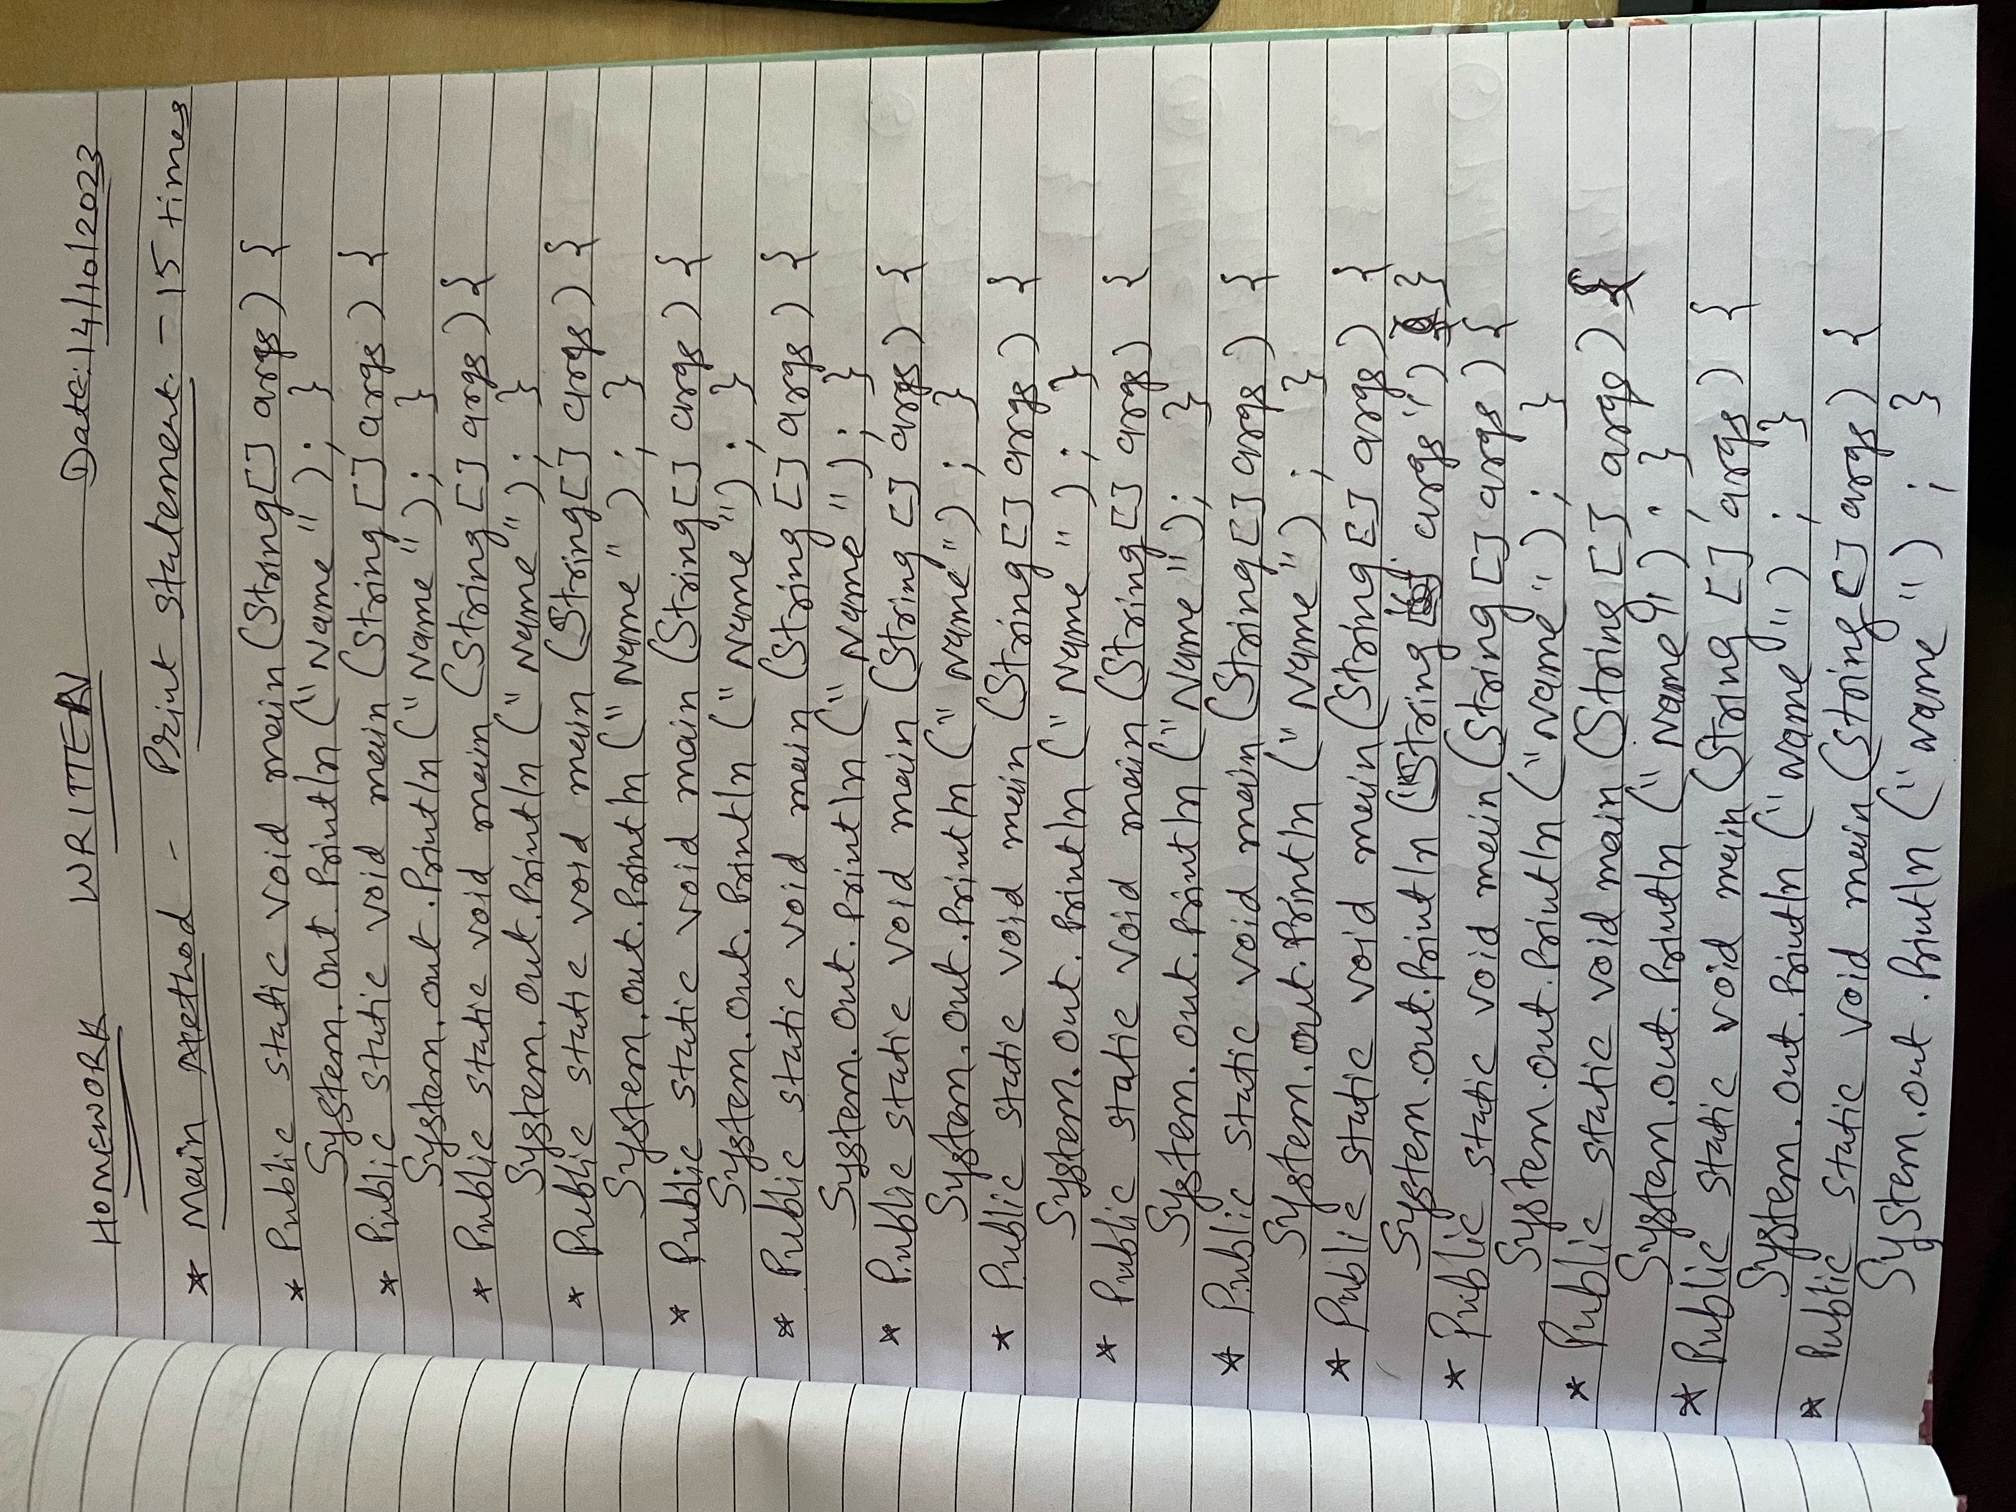 HOMEWORK WRITTEN Date: 14/10/2023
* Main Method - Print statement. - 15 times
* Public static void main (String[] args) {
System.out.Println ("Name"); }
* Public static void main (String [] args) {
System.out.Println ("Name"); }
* Public static void main (String [] args) {
System.out.Println ("Name"); }
* Public static void main (String[] args) {
System.out.Println ("Name"); }
* Public static void main (String[] args) {
System.out.Println ("Name"); }
* Public static void main (String [] args) {
System.out.Println ("Name"); }
* Public static void main (String [] args) {
System.out.Println ("Name"); }
* Public static void main (String [] args) {
System.out.Println ("Name"); }
* Public static void main (String[] args) {
System.out.Println ("Name"); }
* Public static void main (String[] args) {
System.out.Println ("Name"); }
* Public static void main (String[] args) {
System.out.Println ("String args") }
* Public static void main (String [] args) {
System.out.Println ("Name"); }
* Public static void main (String [] args) {
System.out.Println ("Name"); }
* Public static void main (String [] args) {
System.out.Println ("Name"); }
* Public static void main (String [] args) {
System.out.Println ("Name"); }